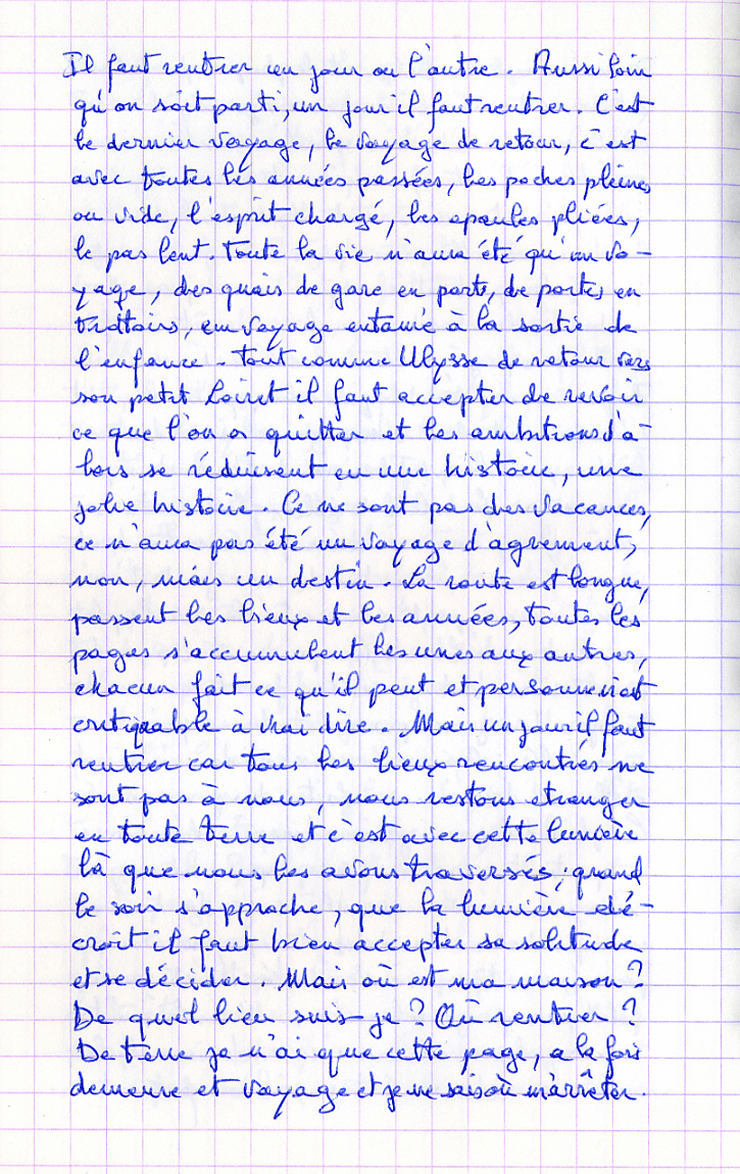 Il faut rentrer un jour ou l'autre. Aussi loin
qu'on soit parti, un jour il faut rentrer. C'est
le dernier voyage, le voyage de retour, c'est
avec toutes les années passées, les poches pleines
ou vide, l'esprit chargé, les epaules pliées,
le pas lent. Toute la vie n'aura été qu'un vo-
yage, des quais de gare en ports, de portes en
trottoirs, un voyage entamé à la sortie de
l'enfance. Tout comme Ulysse de retour vers
son petit Loiret il faut accepter de revoir
ce que l'on a quitter et les ambitions d'a-
lors se réduisent en une histoire, une
jolie histoire. Ce ne sont pas des vacances,
ce n'aura pas été un voyage d'agrement,
non, mais un destin. La route est longue,
passent les lieux et les années, toutes les
pages s'accumulent les unes aux autres,
chacun fait ce qu'il peut et personne n'est
critiquable à vrai dire. Mais un jour il faut
rentrer car tous les lieux rencontrés ne
sont pas à nous, nous restons etranger
en toute terre et c'est avec cette lumière
là que nous les avons traversés; quand
le soir s'approche, que la lumière dé-
croit il faut bien accepter sa solitude
et se décider. Mais où est ma maison?
De quel lieu suis-je? Où rentrer?
De terre je n'ai que cette page, a la fois
demeure et voyage et je ne sais où m'arrêter.